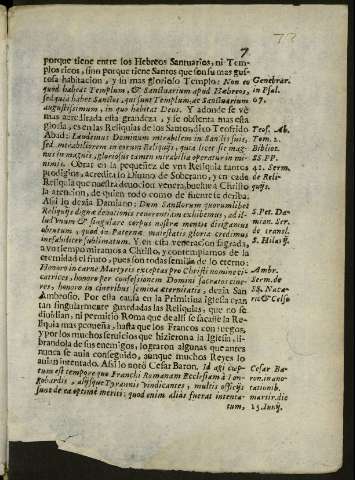 7
porque tiene entre los Hebreos Santuarios, ni Tem-
plos ricos, sino porque tiene Santos que son su mas gus-
tosa habitacion, y su mas glorioso Templo: Non eo
quod habeat Templum, & Sanctuarium apud Hebreos,
sed quia habet Sanctos, qui sunt Templum, ac Sanctuarium
augustissimum, in quo habitat Deus. Y adonde se vè
mas acreditada esta grandeza, y se obstenta mas esta
gloria, es en las Reliquias de los Santos, dixo Teofrido
Abad: Laudemus Dominum mirabilem in Sanctis suis,
sed mirabiliorem in eorum Reliquijs, quia licet sit mag-
nus in magnis, gloriosius tamen mirabilia operatur in mi-
nimis. Obrar en la pequeñez de una Reliquia tantos
prodigios, acredita lo Divino de Soberano, y en cada
Reliquia que nuestra devocion venera, buelve a Christo
la atencion, de quien todo como de fuente se deriba.
Assi lo dezia Damiano: Dum Sanctorum quorumlibet
Reliquijs dignæ devotionis reverentiam exhibemus, ad il-
lud unum & singulare corpus nostræ mentis dirigamus
obtutum, quod in Paternæ maiestatis gloria credimus
inefabiliter sublimatum. Y en esta veneracion sagrada,
a vn tiempo miramos a Christo, y contemplamos de la
eternidad el fruto, pues son todas semillas de lo eterno:
Honoro in carne Martyris exceptas pro Christi nomine ci-
catrices, honoro per confessionem Domini sacratos cine-
res, honoro in cineribus semina æternitatis, dezia San
Ambrosio. Por esta causa en la Primitiva Iglesia eran
tan singularmente guardadas las Reliquias, que no se
dividian, ni permitio Roma que de allì se sacasse la Re-
liquia mas pequeña, hasta que los Francos con ruegos,
y por los muchos servicios que hizieron a la Iglesia, li-
brandola de sus enemigos, lograron algunas que antes
nunca se avia conseguido, aunque muchos Reyes lo
avian intentado. Assi lo notò Cesar Baron. Id agi cæp-
tum est tempore quo Franchi Romanam Ecclesiam à Lon-
gobardis, alijsque Tyrannis vindicantes, multis officijs
sunt de ea optimè meriti: quod enim aliàs fuerat intenta-
tum,
Genebrar.
in Psal.
67.
Teof. Ab.
Tom. 2.
Bibliot.
SS. PP.
42. Serm.
de Reli-
quijs.
S. Pet. Da-
mian. Ser.
de transl.
S. Hilarij.
Ambr.
Serm. de
SS. Naza-
rio & Celso
Cesar Ba-
ron. in ano-
tationib.
martir. die
25. Iunij.